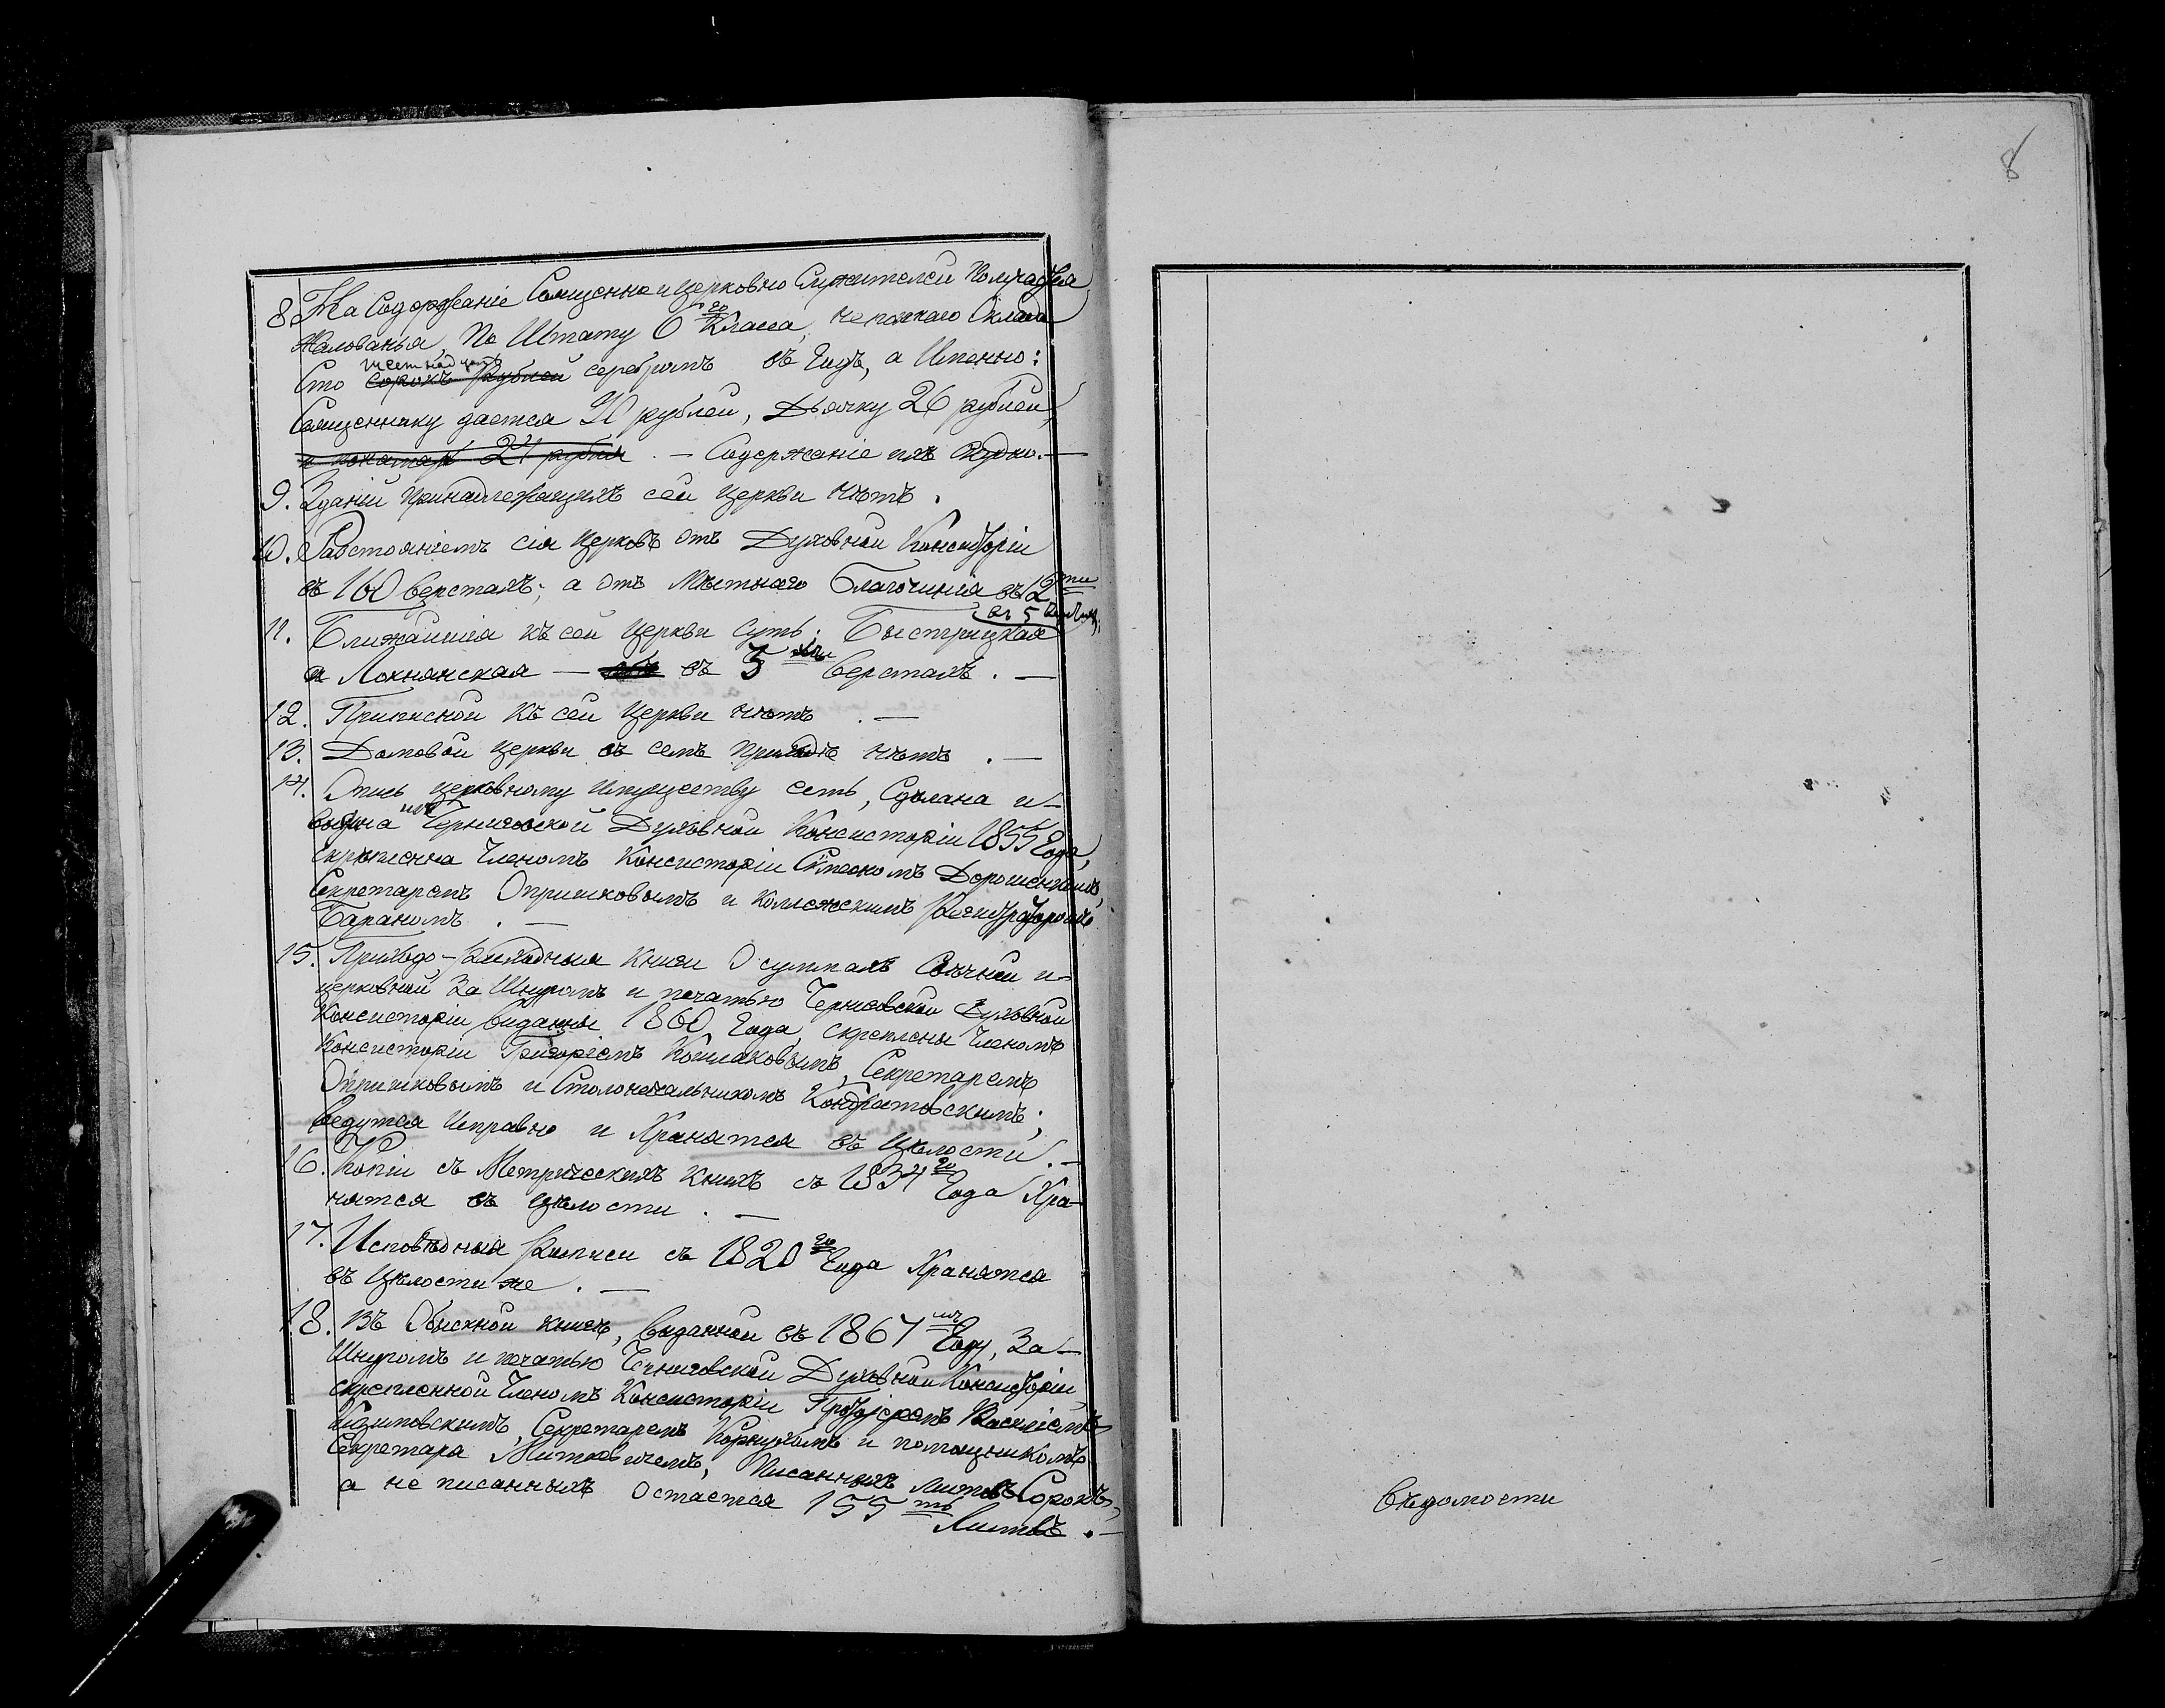 8
8. На Содержаніе Священно и церковно Служителей Получается
Жалованья, По Штату 6го Класа, неполнаго Оклада
шестнадцать
Сто сорокъ Рублей серебромъ въ Годъ, а Именно:
Священнику дается 90 рублей, Дьячку 26 рублей,
и понамарю 24 рубля. — Содержаніе ихъ Скудно. —
9. Зданій принадлежащихъ сей церкви нѣтъ.
10. Разстояніемъ сія Церковъ отъ Духовной Консисторіи
въ 160 верстахъ; а отъ Мѣстнаго Благочинія въ 12ти
въ 5 верстахъ,
11. Ближайшія къ сей Церкви суть: Быстрицкая
а Локнянская — въ 5хъ верстахъ. —
12. Приписной къ сей Церкви нѣтъ. —
13. Домовой церкви въ семъ приходѣ нѣтъ. —
14. Опись церковному имуществу есть, Сдѣлана и
выдана изъ Черниговской Духовной Консисторіи 1855 Года,
скрѣплена Членомъ Консисторіи Симеономъ Дорошенкомъ,
Секретаремъ Опришковымъ и Коллежскимъ Регистраторомъ
Бараномъ. —
15. Приходо-Расходныя книги о суммахъ Свѣчной и
церковной за Шнуромъ и печатью Черниговской Духовной
Консисторіи выданы 1860 Года, скреплены Членомъ
Консисторіи Григоріемъ Кошлаковымъ, Секретаремъ
Опришковымъ и Столоначальникомъ Кондратовскимъ;
ведутся Исправно и Хранятся въ цѣлости. —
16. Копіи съ Метрическихъ книгъ съ 1834го Года Хра-
нятся въ цѣлости. —
17. Исповѣдныя Росписи съ 1820го Года Хранятся
въ Цѣлости же. —
18. Въ Обыскной книгѣ, выданной въ 1867мъ Году, За
Шнуромъ и печатью Черниговской Духовной Консисторіи,
скрепленной Членомъ Консисторіи Протоіереемъ Василіемъ
Секретаремъ Корнухомъ и помощникомъ
Секретара Миткевичемъ, Писанныхъ листовъ Сорокъ,
а не писанныхъ остается 155ть
Листовъ. —
Вѣдомости